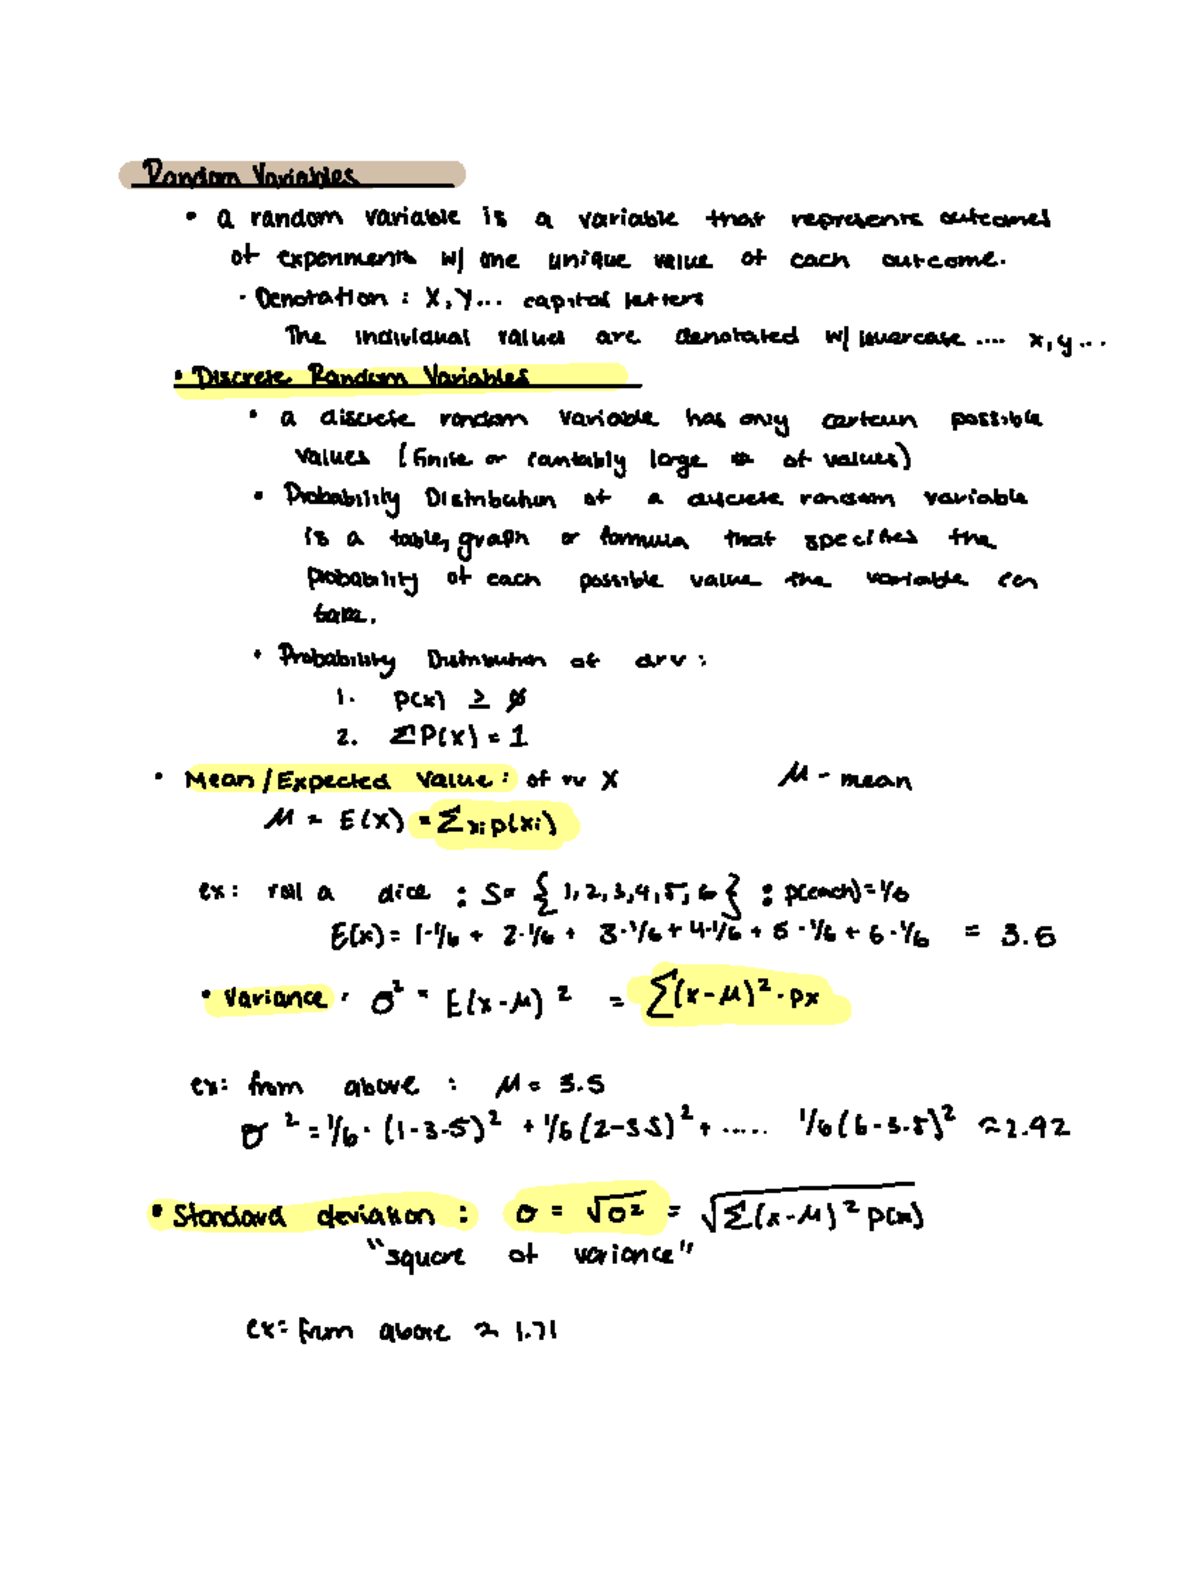 Random Variables
• a random variable is a variable that represents outcomes
of experiments w/ one unique value of each outcome.
· Denotation : X, Y... capital letters
The individual values are denotated w/ lowercase .... x, y...
• Discrete Random Variables
• a discrete random variable has only certain possible
values (finite or countably large # of values)
• Probability Distribution of a discrete random variable
is a table, graph or formula that specifies the
probability of each possible value the variable can
take.
• Probability Distribution of drv :
1. p(x) ≥ 0
2. ΣP(x) = 1
• Mean / Expected Value : of rv X μ - mean
μ = E(X) = Σxi p(xi)
ex: roll a dice : S= {1, 2, 3, 4, 5, 6} : p(each) = 1/6
E(x) = 1·1/6 + 2·1/6 + 3·1/6 + 4·1/6 + 5·1/6 + 6·1/6 = 3.5
• Variance : σ² = E(x-μ)² = Σ(x-μ)²·px
ex: from above : μ = 3.5
σ² = 1/6 · (1-3.5)² + 1/6 (2-3.5)² + ..... 1/6 (6-3.5)² ≈ 2.92
• Standard deviation : σ = √σ² = √Σ(x-μ)² p(x)
"square of variance"
ex: from above ≈ 1.71